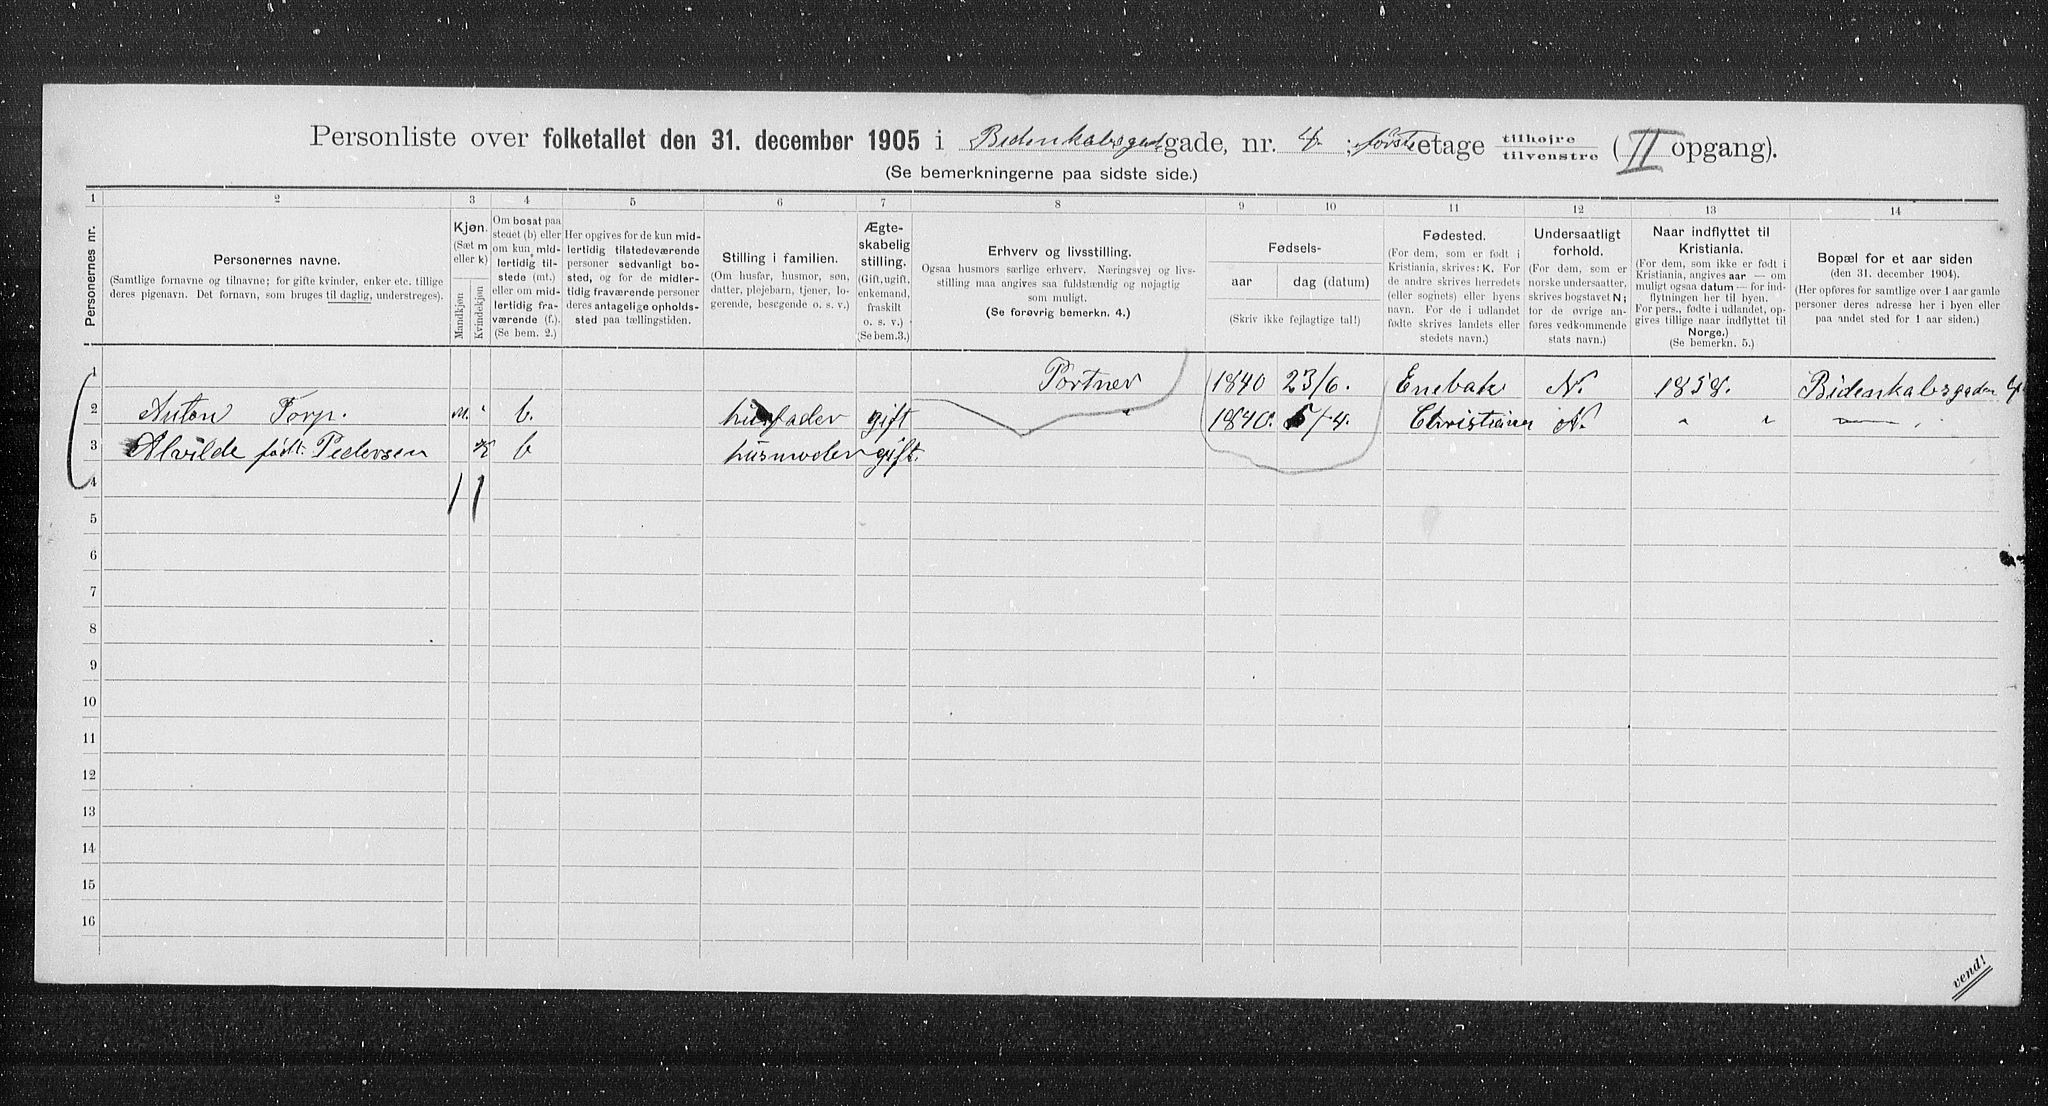 Personliste over folketallet den 31. december 1905 i Bidenkabsgad gade, nr. 4. ; første etage tilhøjre tilvenstre (II opgang).
(Se bemerkningerne paa sidste side.)
1 2 3 4 5 6 7 8 9 10 11 12 13 14
Personernes nr.
Personernes navne.
(Samtlige fornavne og tilnavne; for gifte kvinder, enker etc. tillige deres pigenavn. Det fornavn, som bruges til daglig, understreges).
Kjøn.
(Sæt m eller k)
Mandkjøn
Kvindekjøn
Om bosat paa stedet (b) eller om kun midlertidig tilstede (mt.) eller om midlertidig fraværende (f.). (Se bem. 2.)
Her opgives for de kun midlertidig tilstedeværende personer sedvanligt bosted, og for de midlertidig fraværende personer deres antagelige opholdssted paa tællingstiden.
Stilling i familien.
(Om husfar, husmor, søn, datter, plejebarn, tjener, logerende, besøgende o. s. v.)
Ægteskabelig stilling.
(Gift, ugift, enkemand, fraskilt o. s. v.)
(Se bem.3.)
Erhverv og livsstilling.
Ogsaa husmors særlige erhverv. Næringsvej og livsstilling maa angives saa fuldstændig og nøjagtig som muligt.
(Se forøvrig bemerkn. 4.)
Fødsels-
aar
dag (datum)
(Skriv ikke fejlagtige tal!)
Fødested.
(For dem, som er født i Kristiania, skrives: K. For de andre skrives herredets (eller sognets) eller byens navn. For de i udlandet fødte skrives landets eller stedets navn.)
Undersaatligt forhold.
(For dem, som er norske undersaatter, skrives bogstavet N; for de øvrige anføres vedkommende stats navn.)
Naar indflyttet til Kristiania.
(For dem, som ikke er født i Kristiania, angives aar — om muligt ogsaa datum — for indflytningen her til byen. For pers., fødte i udlandet, opgives tillige naar indflyttet til Norge.)
(Se bemerkn. 5.)
Bopæl for et aar siden
(den 31. december 1904).
(Her opføres for samtlige over 1 aar gamle personer deres adresse her i byen eller paa andet sted for 1 aar siden.)
1 Portner 1840 23/6. Enebak N. 1858. Bidenkabsgaden 4
2 Anton Torp. m. b. husfader gift " 1840. 5/4. Christiania N. " "
3 Alvilde født: Pedersen k b husmoder gift.
4 1 1
5
6
7
8
9
10
11
12
13
14
15
16
vend!